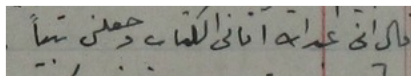 قال انى عبد الله اتانى الكتاب وجعلنى نبياً